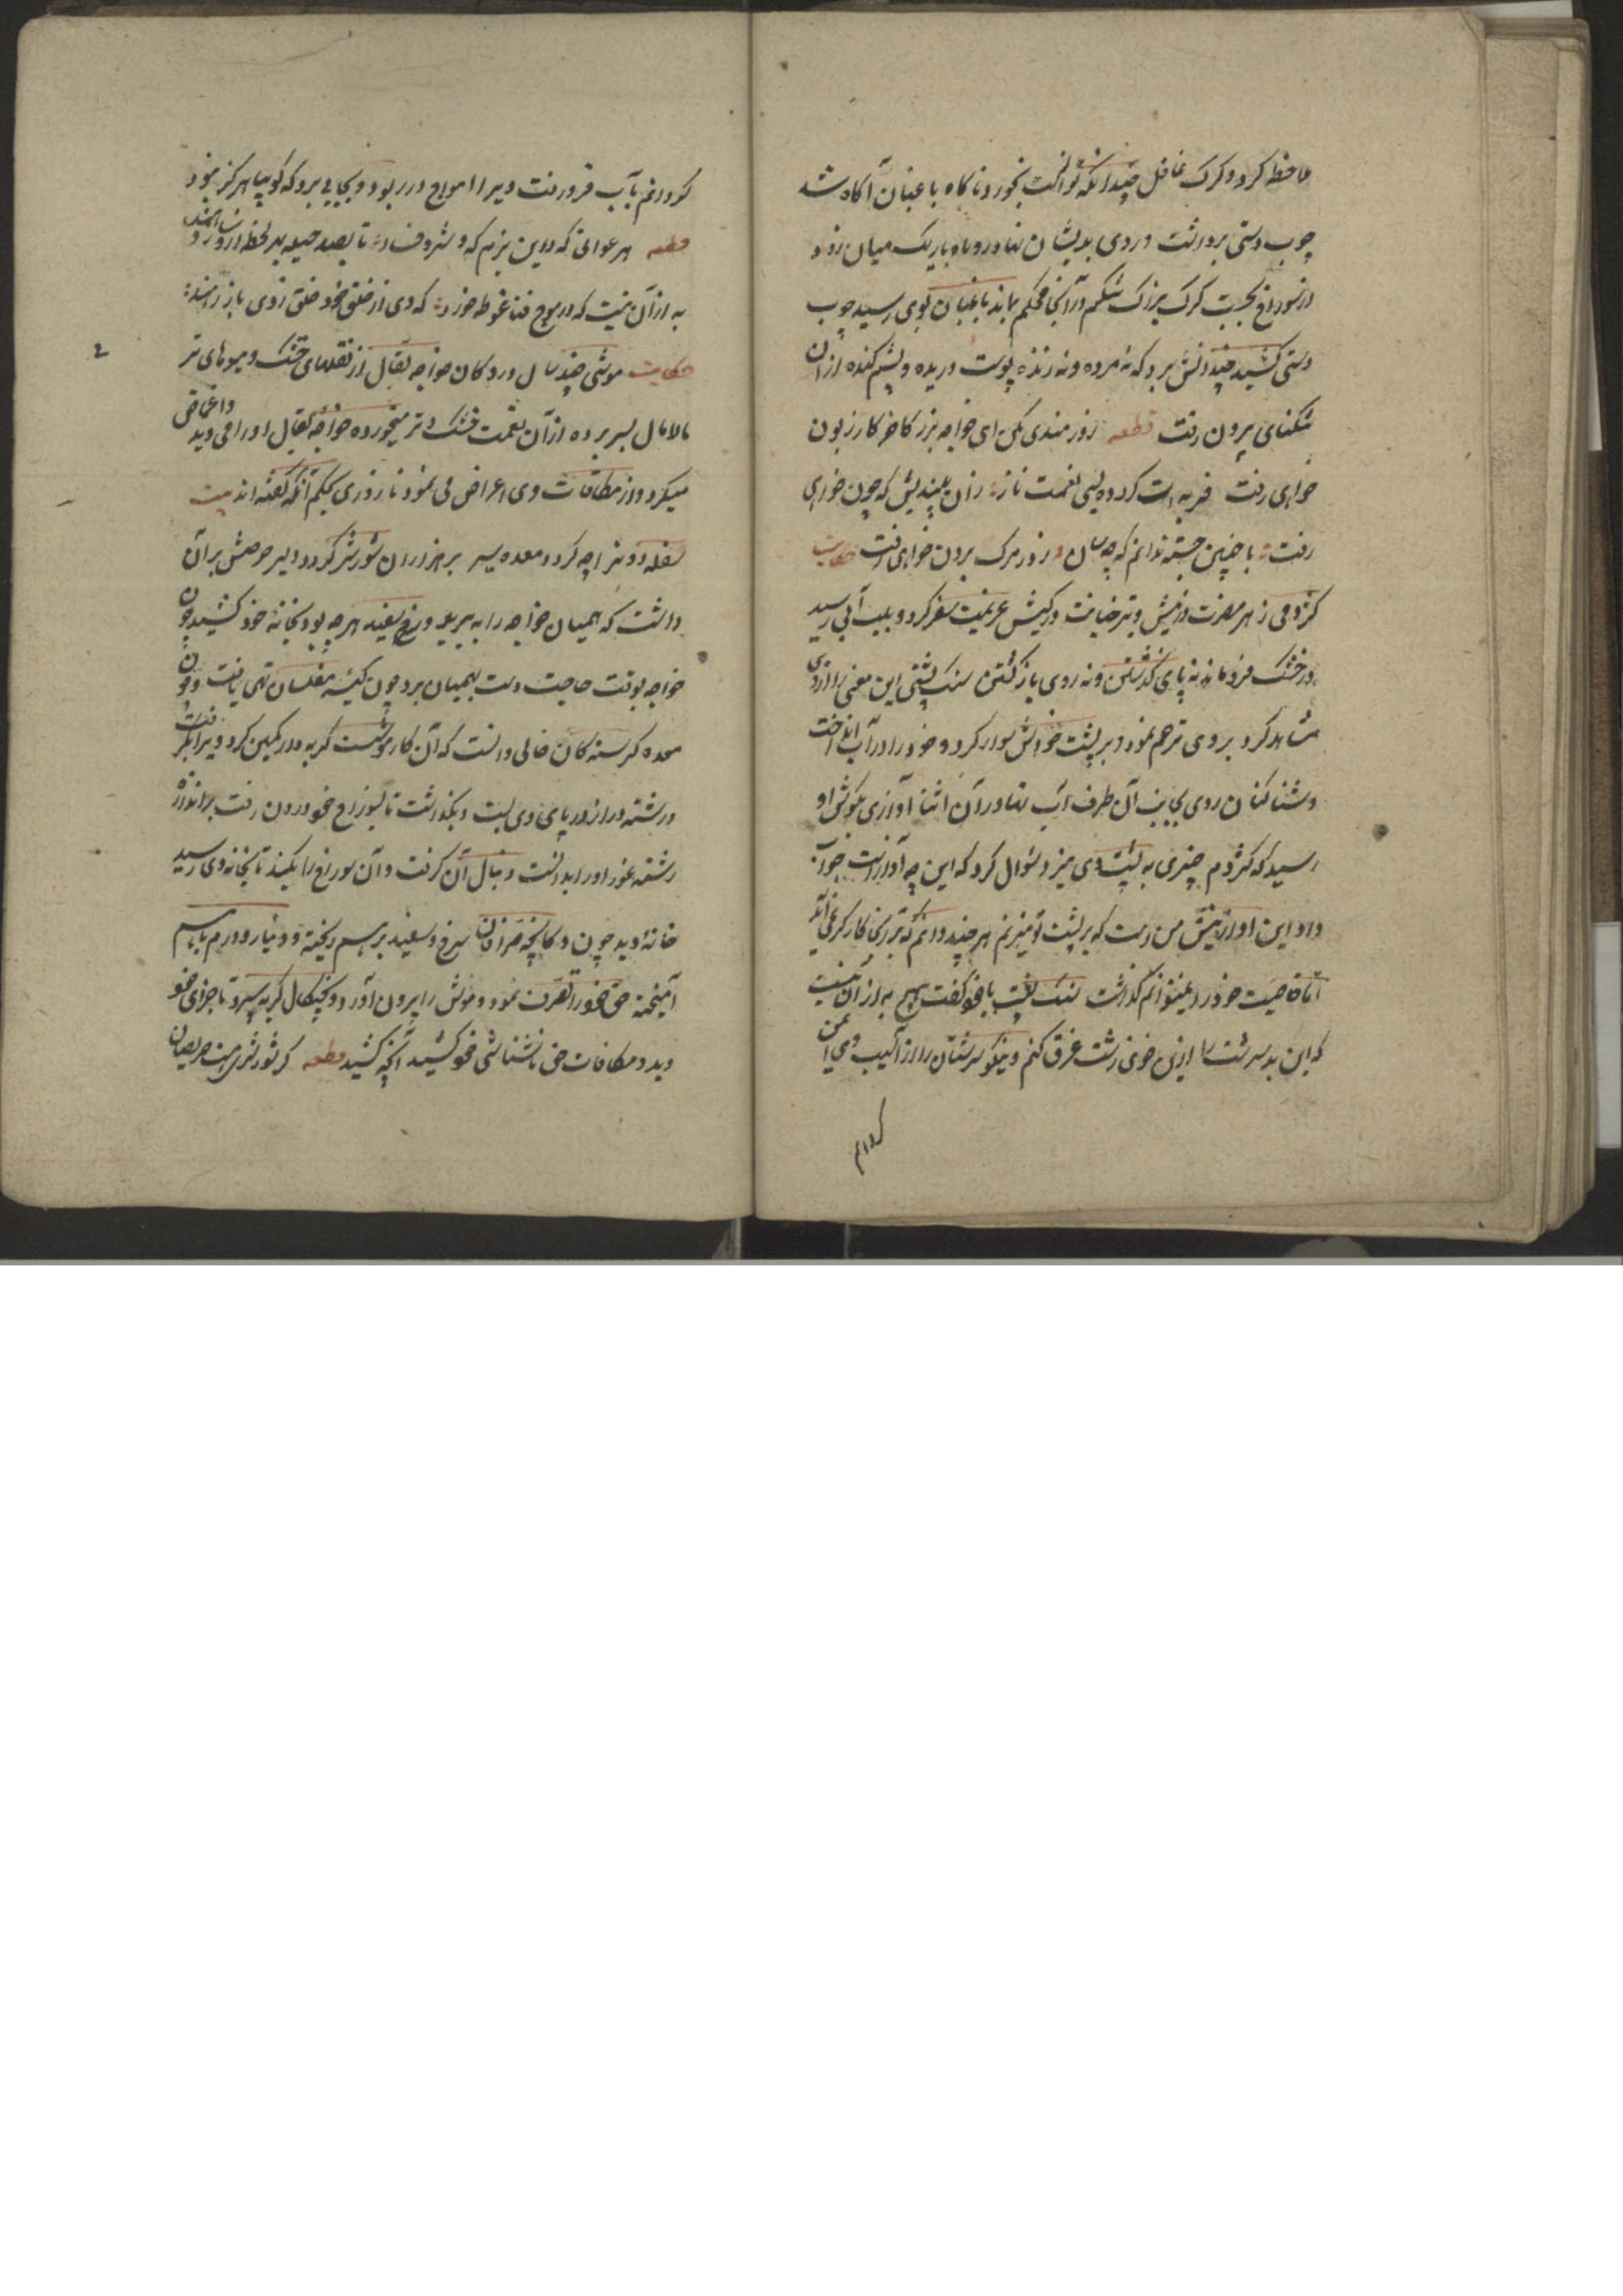 ملاحظه کرد و کرک غافل چندانکه توانست بخورد ناکاه باغبان آکاه شد
چوب دستی برداشت و روی بدیشان نهاد روباه باریک میان زود
از سوراخ بجست کرک بزرک شکم در آنجا محکم بماند باغبان بوی رسید چوب
دستی کشید چندانش بزد که نه مرده و نه زنده پوست دریده و پشم کنده از آن
تنکنای بیرون رفت قطعه زورمندی مکن ای خواجه بزر کاخر کار زبون
خواهی رفت فربه‌ات کرده بسی نعمت ناز زان بیندیش که چون خواهی
رفت با چنین جثه ندانم که چه سان از در مرک برون خواهی رفت حکایت
کژدمی زهر مضرت در نیش و تیر خباثت در کیش عزیمت سفر کرد و بلب آبی رسید
در خشک فرو ماند نه پای کذشتن و نه روی باز کشتن سنک پشتی این معنی را از وی
مشاهده کرد بر وی ترحم نمود و بر پشت خودش سوار کرد و خود را در آب انداخت
و شنا کنان روی بجانب آن طرف آب نهاد در آن اثنا آوازی بکوش او
رسید که کژدم چیزی به پشت وی میزد سؤال کرد که این چه آوازست جواب
داد این آواز نیش من است که بر پشت تو میزنم هر چند دانم که بر آنجا کارکر نمی‌آید
اما خاصیت خود را نمیتوانم کذاشت سنک پشت با خود کفت هیچ به از آن نیست
که این بد سرشت را ازین خوی زشت غرق کنم و نیکو سرشتان را از آسیب وی ایمن
کردانم
کردانم بآب فرو رفت و ویرا امواج در ربود و بجایی برد که کویا هرکز نبود
قطعه هر عوانی که درین بزمکه شر و فساد تا بصد حیله بهر لحظه درو رود ساز دهند
به از آن نیست که در موج فنا غوطه خورد که وی از خلق خود خلق ز وی باز رهند
حکایت موشی چند سال در دکان خواجه بقال از نقلهای خشک و میوهای تر
مالامال بسر برده از آن نعمت خشک و تر میخورده خواجه بقال او را می‌دید و اغماض
میکرد و از مکافات وی اعراض می نمود تا روزی بحکم آنکه کفته اند بیت
سفله دون را چه کردد معده سیر بر هزاران شور و شر کردد دلیر حرصش بر آن
داشت که همیان خواجه را ببرید و سرخ و سفید هر چه بود بخانه خود کشید چون
خواجه بوقت حاجت دست بهمیان برد چون کیسه مفلسان تهی یافت و چون
معده کرسنه کان خالی دانست که آن کار موشست کربه وار کمین کرد و ویرا بکرفت
و رشته دراز در پای وی بست و بکذاشت تا بسوراخ خود درون رفت و باندازه
رشته غور او را بدانست دنبال آن کرفت و آن سوراخ را بکند تا بخانه وی رسید
خانه دید چون دکانچه صرافان سرخ و سفید بر هم ریخته و دینار و درم با هم
آمیخته حق خود را تصرف نمود و موش را بیرون آورد و بچنکال کربه سپرد تا جزای خود
دید و مکافات حق ناشناسی خود کشید آنچه کشید قطعه کر شور و شری هست حریصان